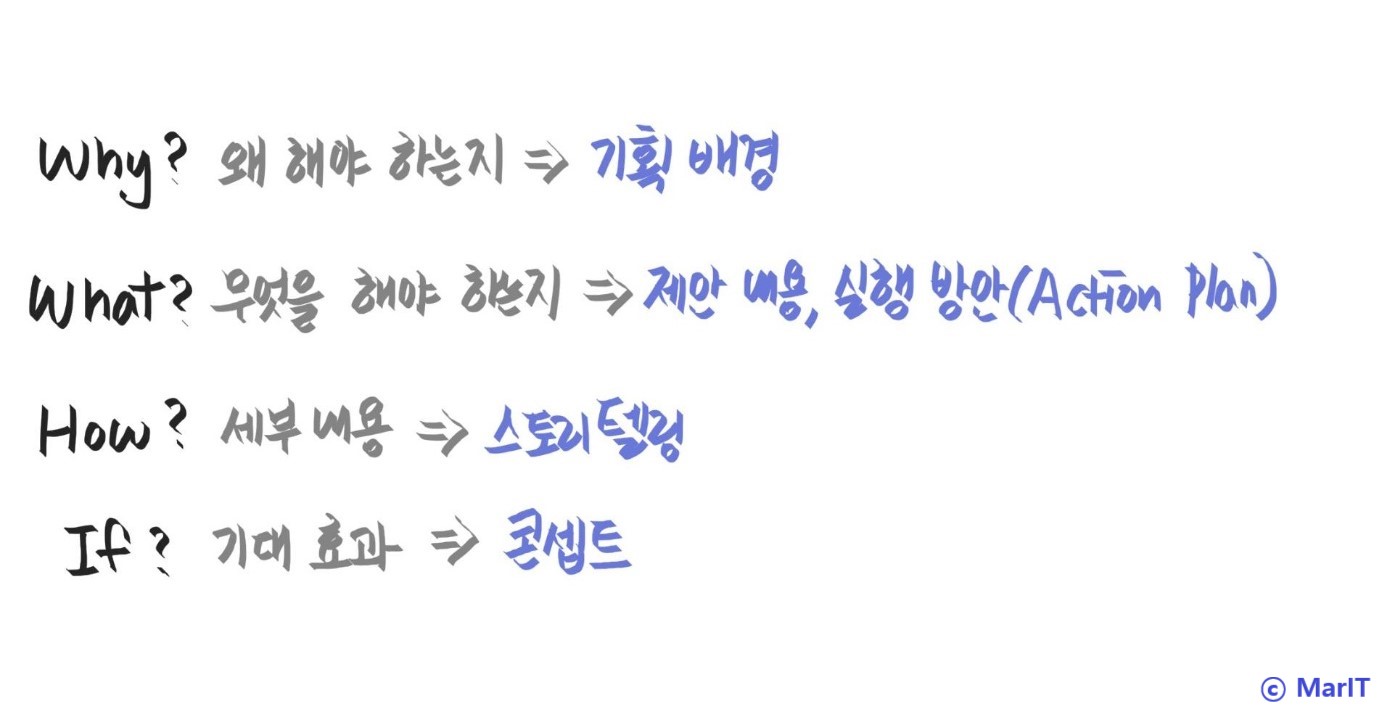 Why? 왜 해야 하는지 => 기획 배경
What? 무엇을 해야 하는지 => 제안 내용, 실행 방안(Action Plan)
How? 세부 내용 => 스토리텔링
If? 기대 효과 => 콘셉트
© MarIT